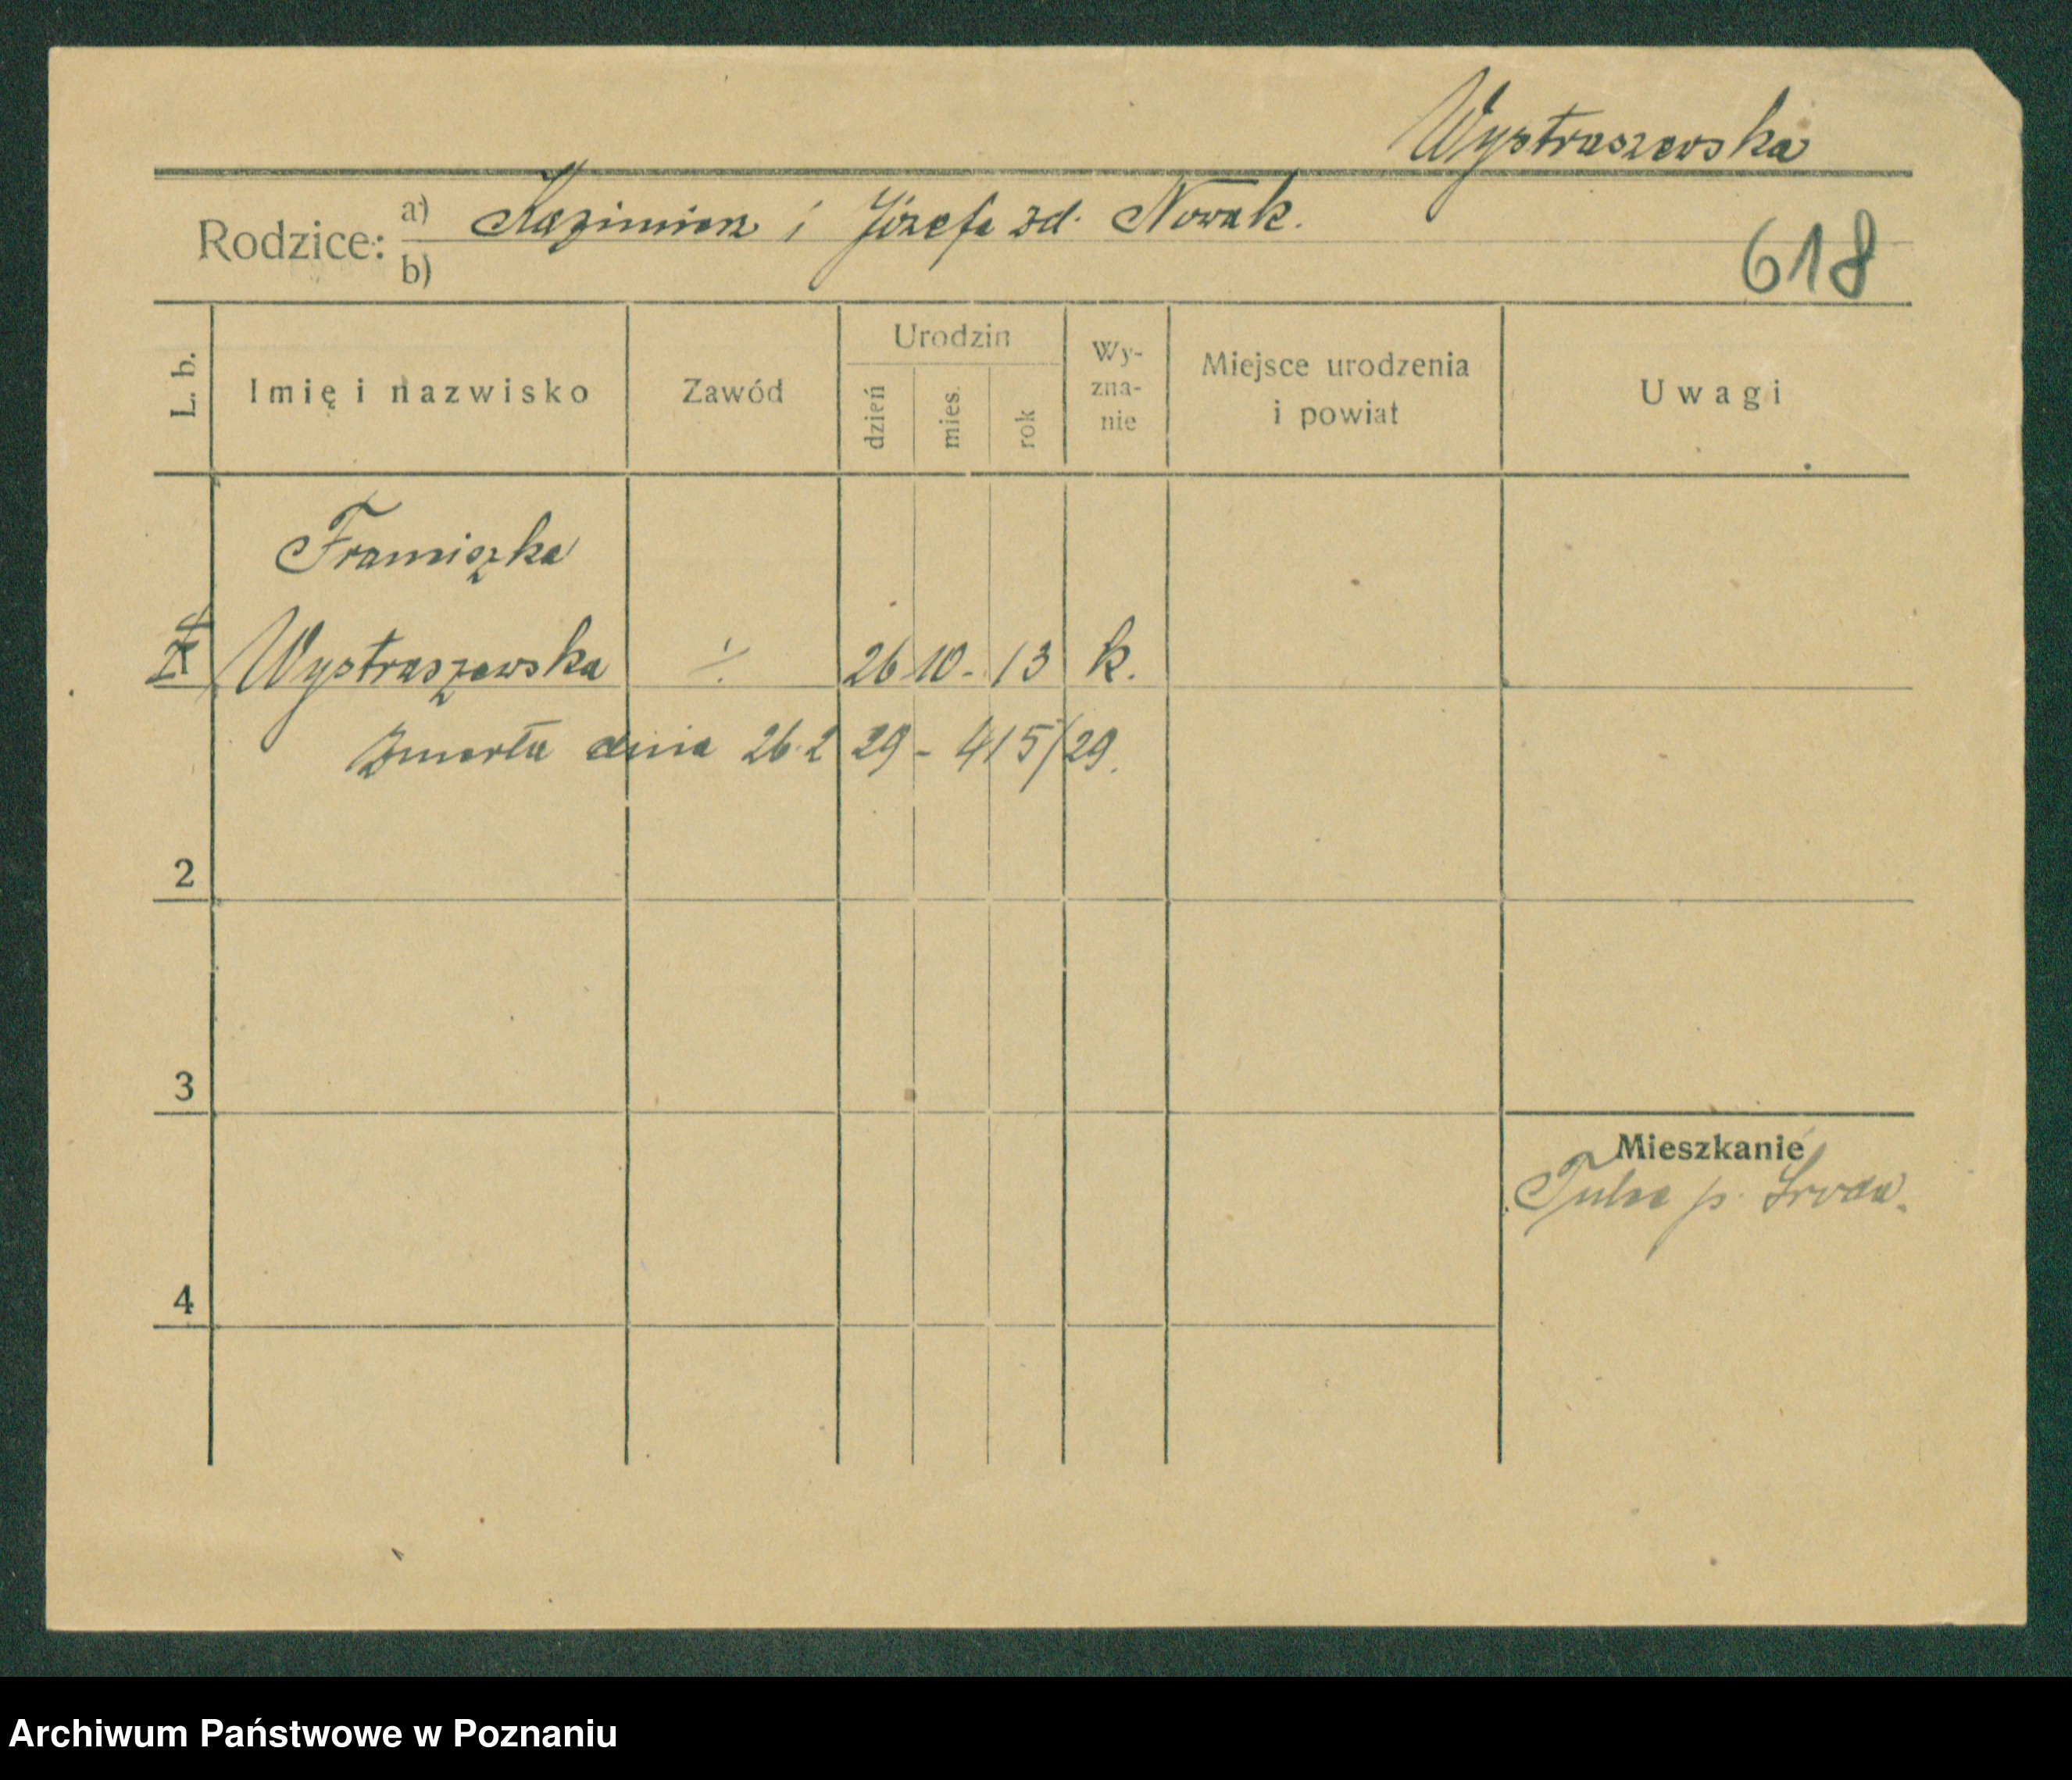 Wystraszewska
Rodzice: a) Kazimierz i Józefa zd. Nowak.
b)
618
L. b.
Imię i nazwisko
Zawód
Urodzin
dzień
mies.
rok
Wy-
zna-
nie
Miejsce urodzenia
i powiat
Uwagi
Franciszka
Wystraszewska ·/. 26 10 - 13 k.
Zmarła dnia 26.2 29 - 415/29.
2
3
4
Mieszkanie
Tulce p. Środa.
Archiwum Państwowe w Poznaniu